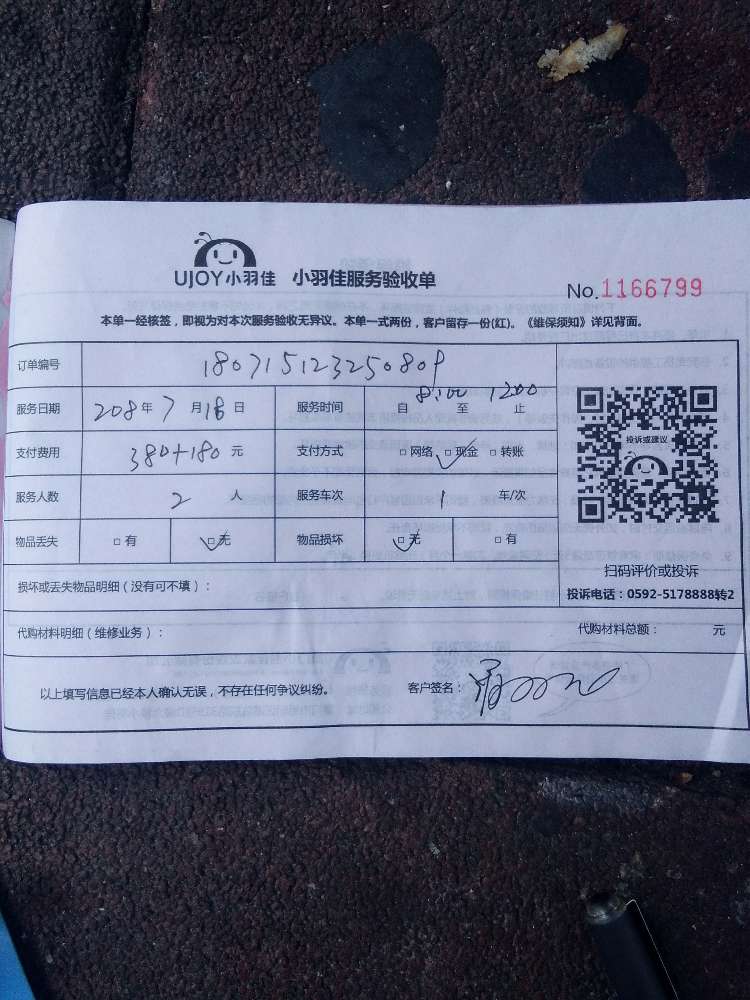 UJOY小羽佳 小羽佳服务验收单
No.1166799
本单一经核签，即视为对本次服务验收无异议。本单一式两份，客户留存一份(红)。《维保须知》详见背面。
订单编号 180715123250809
服务日期 208年7月18日 服务时间 自8:00至1200止
支付费用 380+180元 支付方式 □网络 □现金 □转账
投诉或建议
服务人数 2人 服务车次 1车/次
物品丢失 □有 □无 物品损坏 □无 □有
扫码评价或投诉
损坏或丢失物品明细（没有可不填）：
投诉电话：0592-5178888转2
代购材料明细（维修业务）： 代购材料总额： 元
以上填写信息已经本人确认无误，不存在任何争议纠纷。 客户签名：